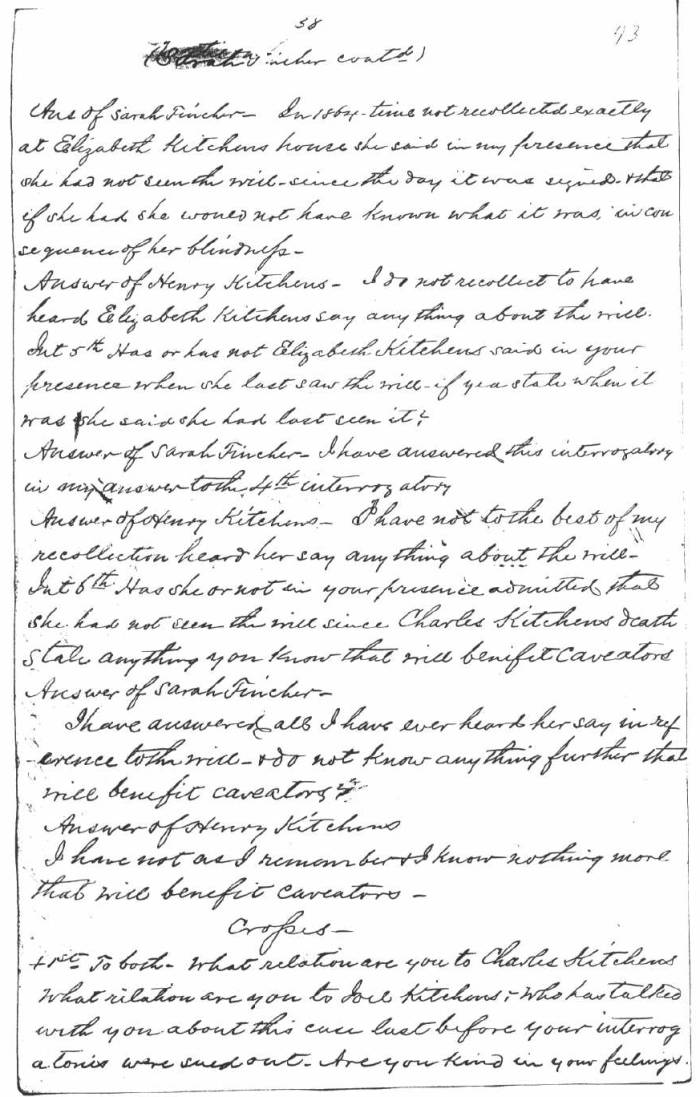 38
93
(Sarah Fincher contd)
Ans of Sarah Fincher - In 1864 - time not recollected exactly
at Elizabeth Kitchens house she said in my presence that
she had not seen the will - since the day it was signed & that
if she had she would not have known what it was, in con
sequence of her blindness -
Answer of Henry Kitchens - I do not recollect to have
heard Elizabeth Kitchens say any thing about the will.
Int 5th Has or has not Elizabeth Kitchens said in your
presence when she last saw the will - if yea state when it
was she said she had last seen it?
Answer of Sarah Fincher - I have answered this interrogatory
in my answer to the 4th interrogatory
Answer of Henry Kitchens - I have not to the best of my
recollection heard her say any thing about the will -
Int 6th Has she or not in your presence admitted that
she had not seen the will since Charles Kitchens death
State anything you know that will benifit Caveators
Answer of Sarah Fincher -
I have answered all I have ever heard her say in ref
erence to the will - & do not know any thing further that
will benifit caveators
Answer of Henry Kitchens
I have not as I remember & I know nothing more
that will benifit Caveators -
Crosses -
1st To both - What relation are you to Charles Kitchens
What relation are you to Joel Kitchens; Who has talked
with you about this case last before your interrog
atories were sued out - Are you kind in your feelings.